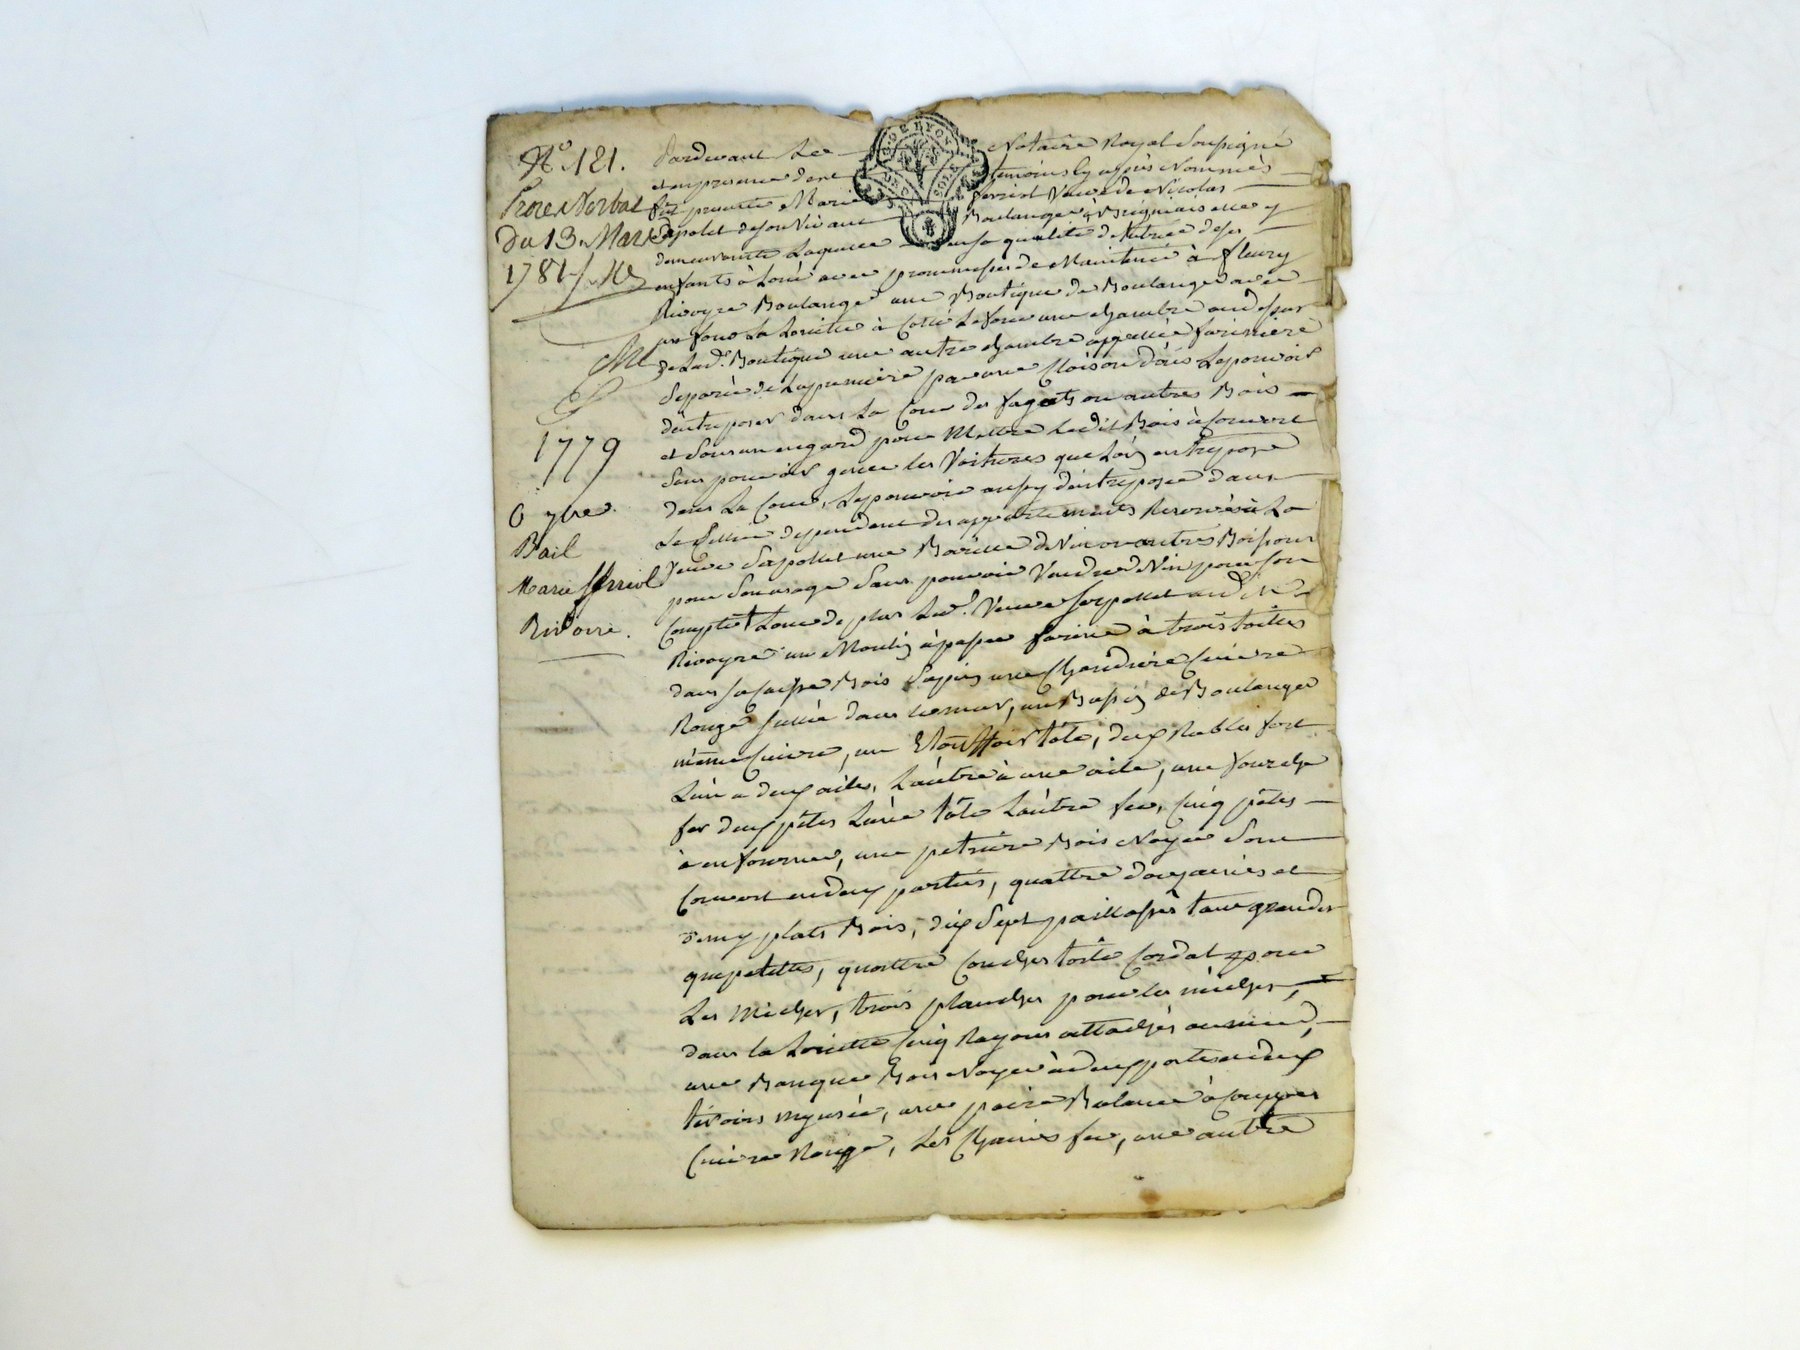 N° 121.
Procès Verbal
du 13 Mars
1781
1779
6 9bre
Bail
Marie ferriol
Rivoire.
GDE LYON
DEUX SOLS
Pardevant Le Notaire Royal Soussigné
et en presence des temoins cy après Nommés
fut presente Marie ferriol Veuve de Nicolas
Serpolet de son Vivant Boulanger à Brignais elle y
demeurante Laquelle en sa qualité de tutrice de ses
enfants à Loué avec promesse de Maintenir à fleury
Rivoyre Boulanger une Boutique de Boulanger avec
un four La à Coté Le four une chambre au dessus
de Lad. Boutique une autre chambre appellée farinière
Separée de La premiere par une Cloison d'ais Le pouvoir
d'entreposer dans La Cour des fagots ou autres Bois
et Sous un engard pour Mettre Ledit Bois à Couvert
Sans pouvoir gener les Voitures que Lon entrepose
dans La Cour, Le pouvoir aussy d'entreposer dans
Le Cellier dependant des appartements Reservés à La
Veuve Serpollet une Barrille de Vin ou autres Boissons
pour Son usage Sans pouvoir Vendre Vin pour Son
Compte Loue de plus Lad. Veuve Serpollet aud.
Rivoyre un Moulin à passer farine à trois toilles
dans sa Caisse Bois Sapin une Chaudière Cuivre
Rouge dans le mur, un Bassin de Boulanger
même Cuivre, un Etouffoir tôle, deux Rables fert
L'un a deux ailes, L'autre à une aile, une fourche
fer deux pêles L'une tôle L'autre fer, Cinq pêles
à enfourner, une petrière Bois Noyer Son
Couvert en deux parties, quattre douzaines et
demy plats Bois, dix Sept paillasses tant grandes
que petittes, quattre Couches toile Cordat pour
Les miches, trois planches pour les miches,
dans la Cinq Rayons attachés au mur,
une Banque Bois Noyer à deux portes et deux
tiroirs , une paire Balance à Couppes
Cuivre Rouge, Les Chaines fer, une autre